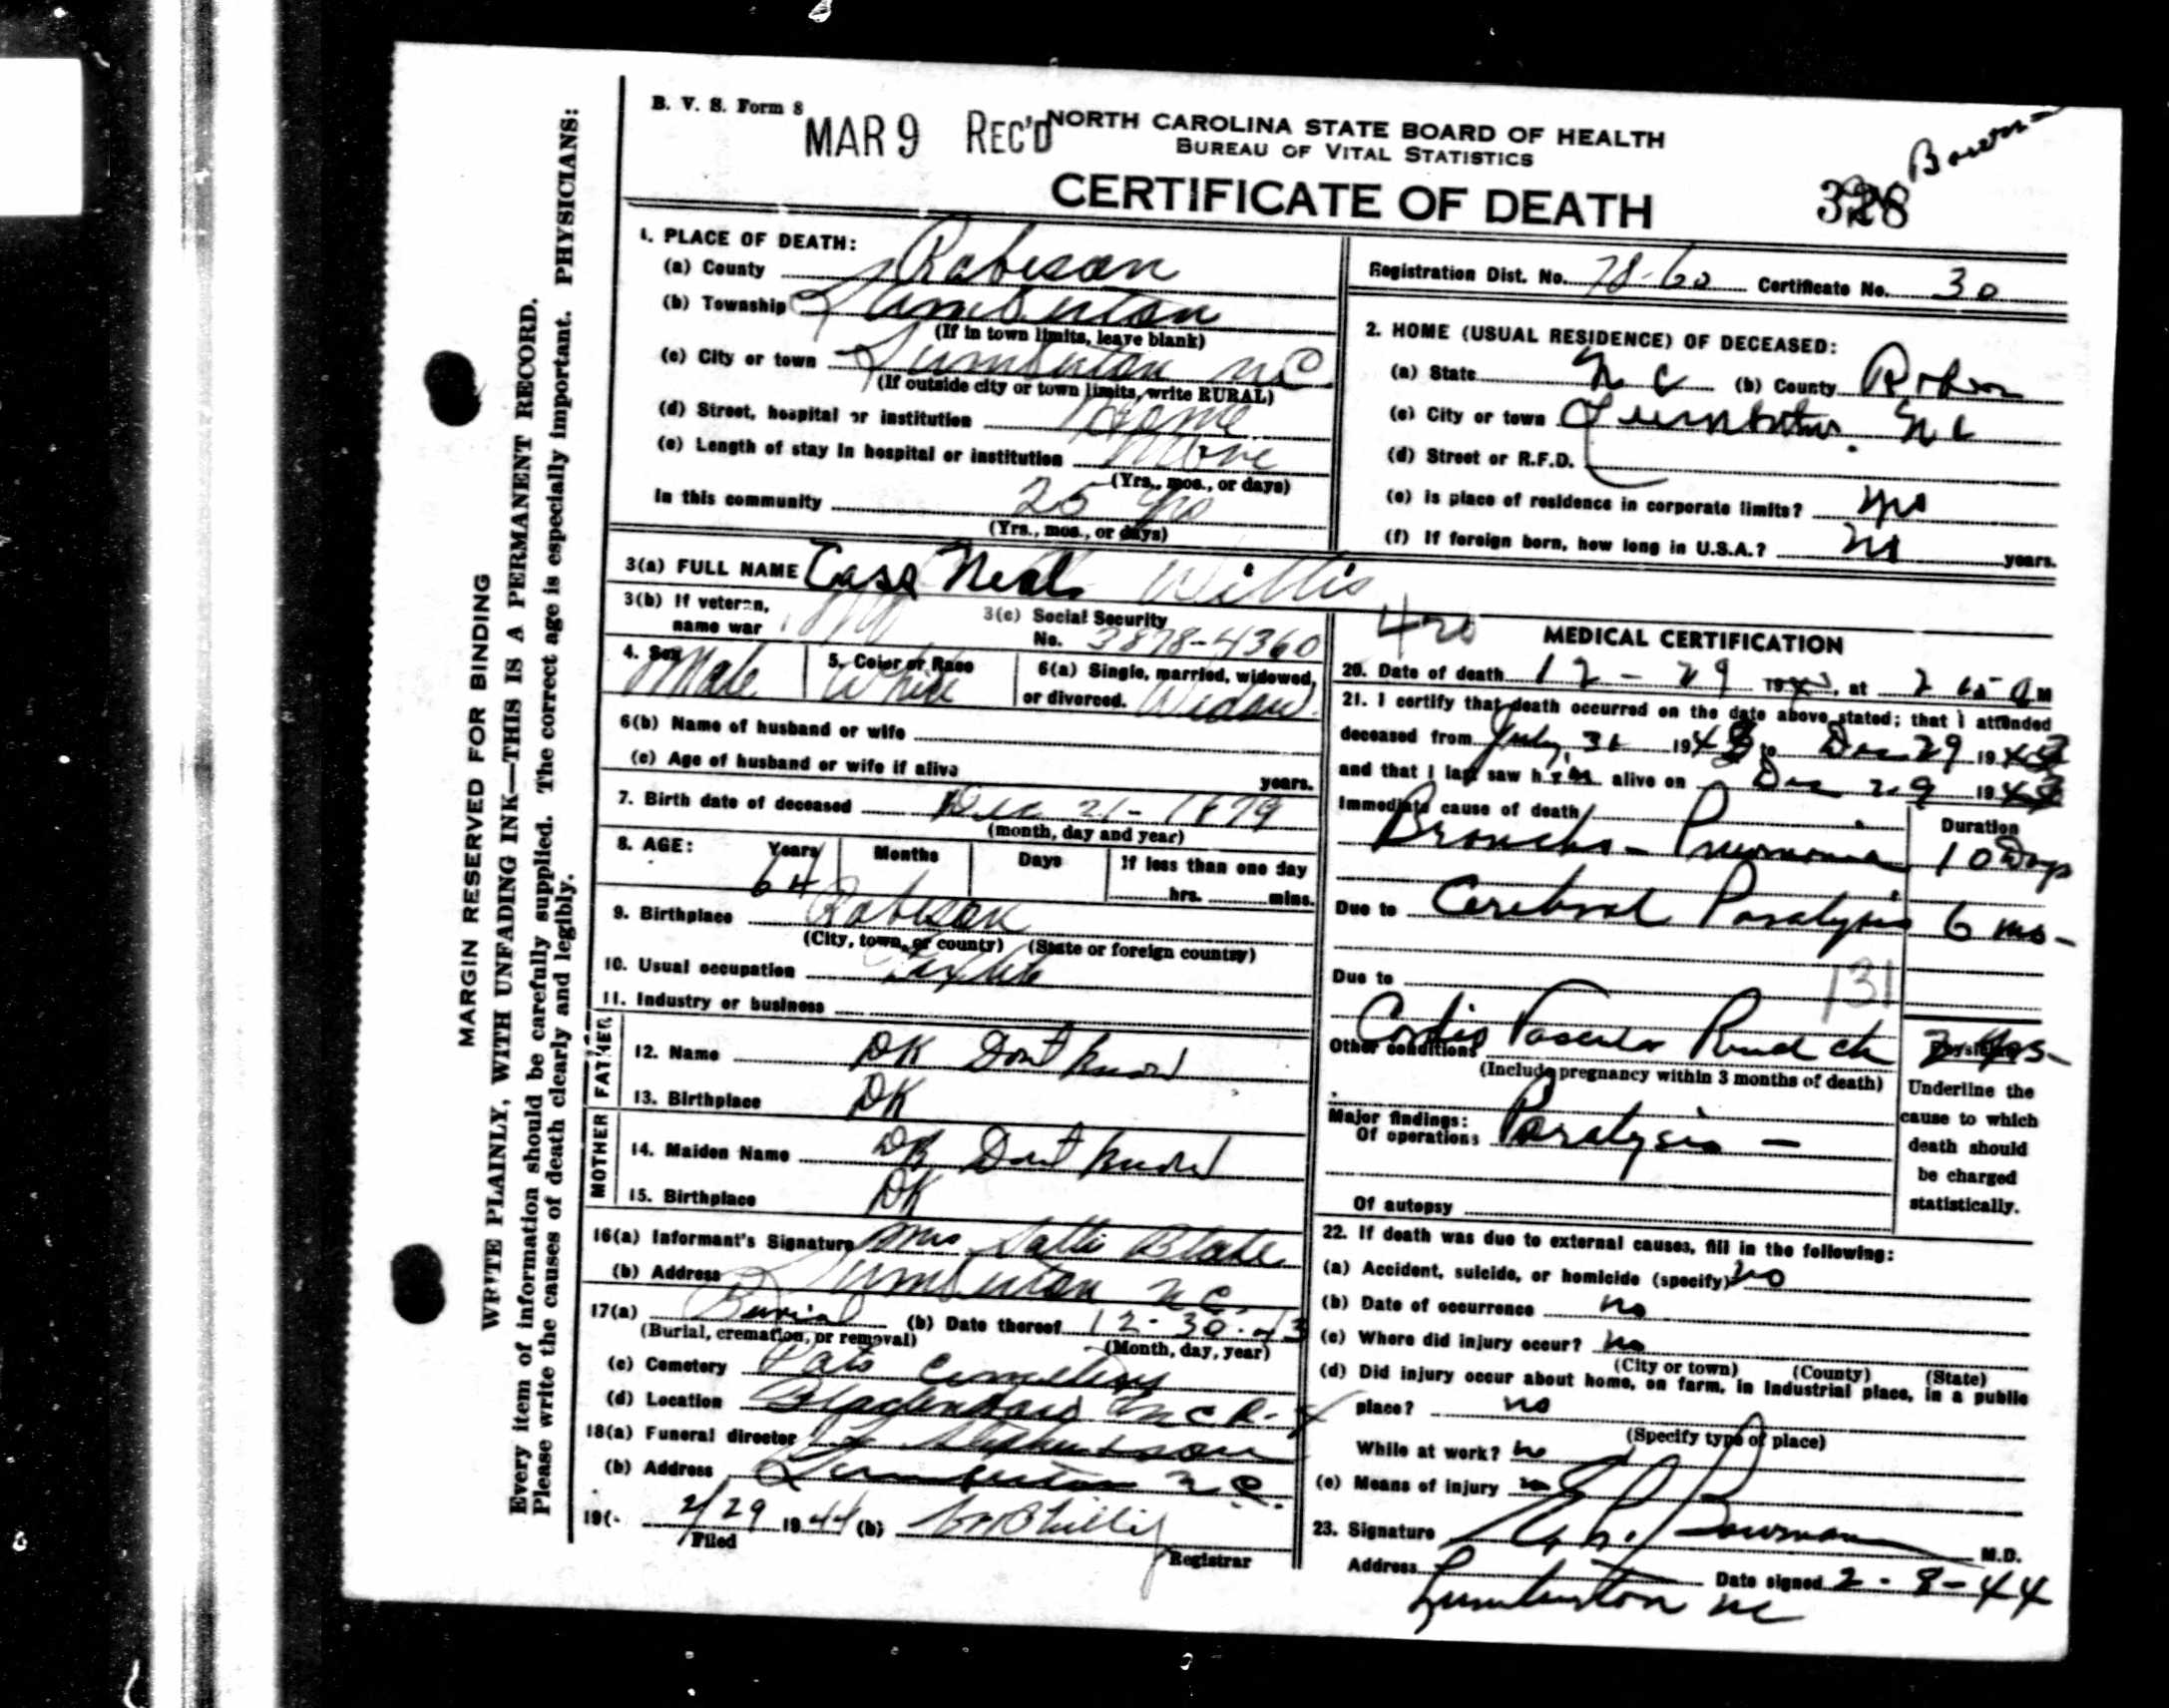 B. V. S. Form 8
MAR 9 REC'D
NORTH CAROLINA STATE BOARD OF HEALTH
BUREAU OF VITAL STATISTICS
CERTIFICATE OF DEATH
328
MARGIN RESERVED FOR BINDING
WRITE PLAINLY, WITH UNFADING INK—THIS IS A PERMANENT RECORD.
Every item of information should be carefully supplied. The correct age is especially important. PHYSICIANS:
Please write the causes of death clearly and legibly.
1. PLACE OF DEATH:
(a) County Robeson
(b) Township Lumberton
(If in town limits, leave blank)
(c) City or town Lumberton NC
(If outside city or town limits, write RURAL)
(d) Street, hospital or institution Home
(e) Length of stay in hospital or institution None
(Yrs., mos., or days)
In this community 25 yrs
(Yrs., mos., or days)
Registration Dist. No. 78-60 Certificate No. 30
2. HOME (USUAL RESIDENCE) OF DECEASED:
(a) State N C (b) County
(c) City or town Lumberton. N C
(d) Street or R.F.D.
(e) Is place of residence in corporate limits?
(f) If foreign born, how long in U.S.A.? years.
3(a) FULL NAME Neal Willis
3(b) If veteran,
name war
3(c) Social Security
No. 3878-4360
4. Sex Male
5. Color or Race White
6(a) Single, married, widowed,
or divorced. Widow
6(b) Name of husband or wife
(c) Age of husband or wife if alive years.
7. Birth date of deceased Dec 21-1879
(month, day and year)
8. AGE: Years Months Days If less than one day
64 hrs. mins.
9. Birthplace Robeson
(City, town, or county) (State or foreign country)
10. Usual occupation Textile
11. Industry or business
FATHER
12. Name DK Dont know
13. Birthplace DK
MOTHER
14. Maiden Name DK Dont know
15. Birthplace DK
16(a) Informant's Signature Mrs Blake
(b) Address Lumberton N.C.
17(a) Burial (b) Date thereof 12-30-43
(Burial, cremation, or removal) (Month, day, year)
(c) Cemetery Cemetery
(d) Location
18(a) Funeral director
(b) Address Lumberton N.C.
19( 2/29 1944 (b)
Filed Registrar
MEDICAL CERTIFICATION
20. Date of death 12-29 at M
21. I certify that death occurred on the date above stated; that I attended
deceased from July 31 1943 to Dec 29 1943
and that I last saw him alive on Dec 29 1943
Immediate cause of death Duration
Broncho-Pneumonia 10 Days
Due to Cerebral Paralysis 6 mo-
Due to 131
Cardio Vascular
Other conditions
(Include pregnancy within 3 months of death)
Underline the
cause to which
death should
be charged
statistically.
Major findings:
Of operations Paralysis —
Of autopsy
22. If death was due to external causes, fill in the following:
(a) Accident, suicide, or homicide (specify) no
(b) Date of occurrence no
(c) Where did injury occur? no
(City or town) (County) (State)
(d) Did injury occur about home, on farm, in industrial place, in a public
place? no
(Specify type of place)
While at work? no
(e) Means of injury no
23. Signature Bowman M.D.
Address Date signed 2-8-44
Lumberton NC